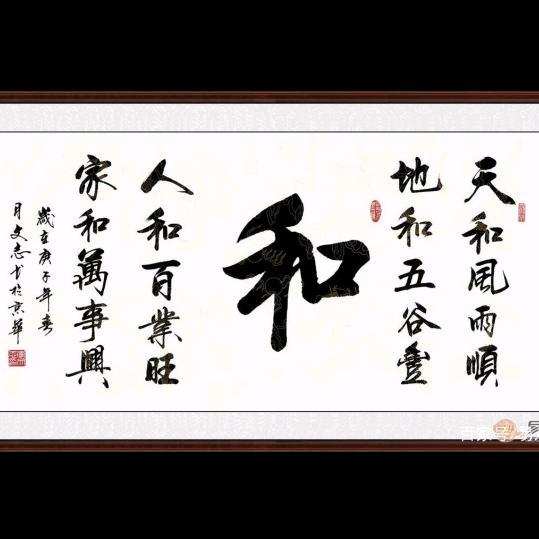 天和風雨順
地和五谷豐
和
人和百業旺
家和萬事興
歲在庚子年春
月文志書於京華
百家号